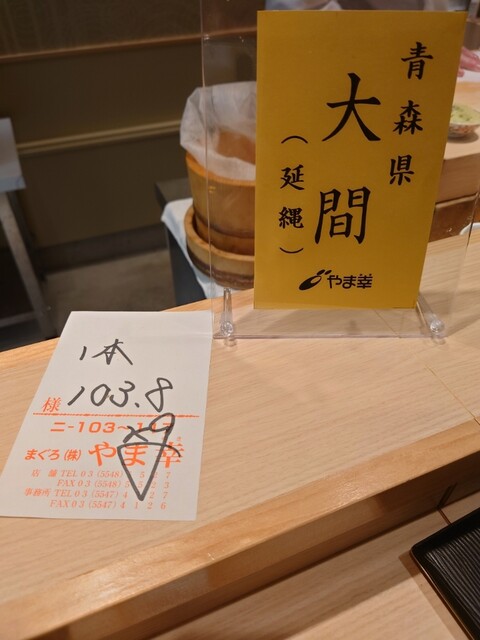 青森県
大間
（延縄）
やま幸
1本
様 103.8
ニ-103~
まぐろ(株) やま幸
店舗 TEL 03(5548)
FAX 03(5548)
事務所 TEL 03(5547)4
FAX 03(5547)4126